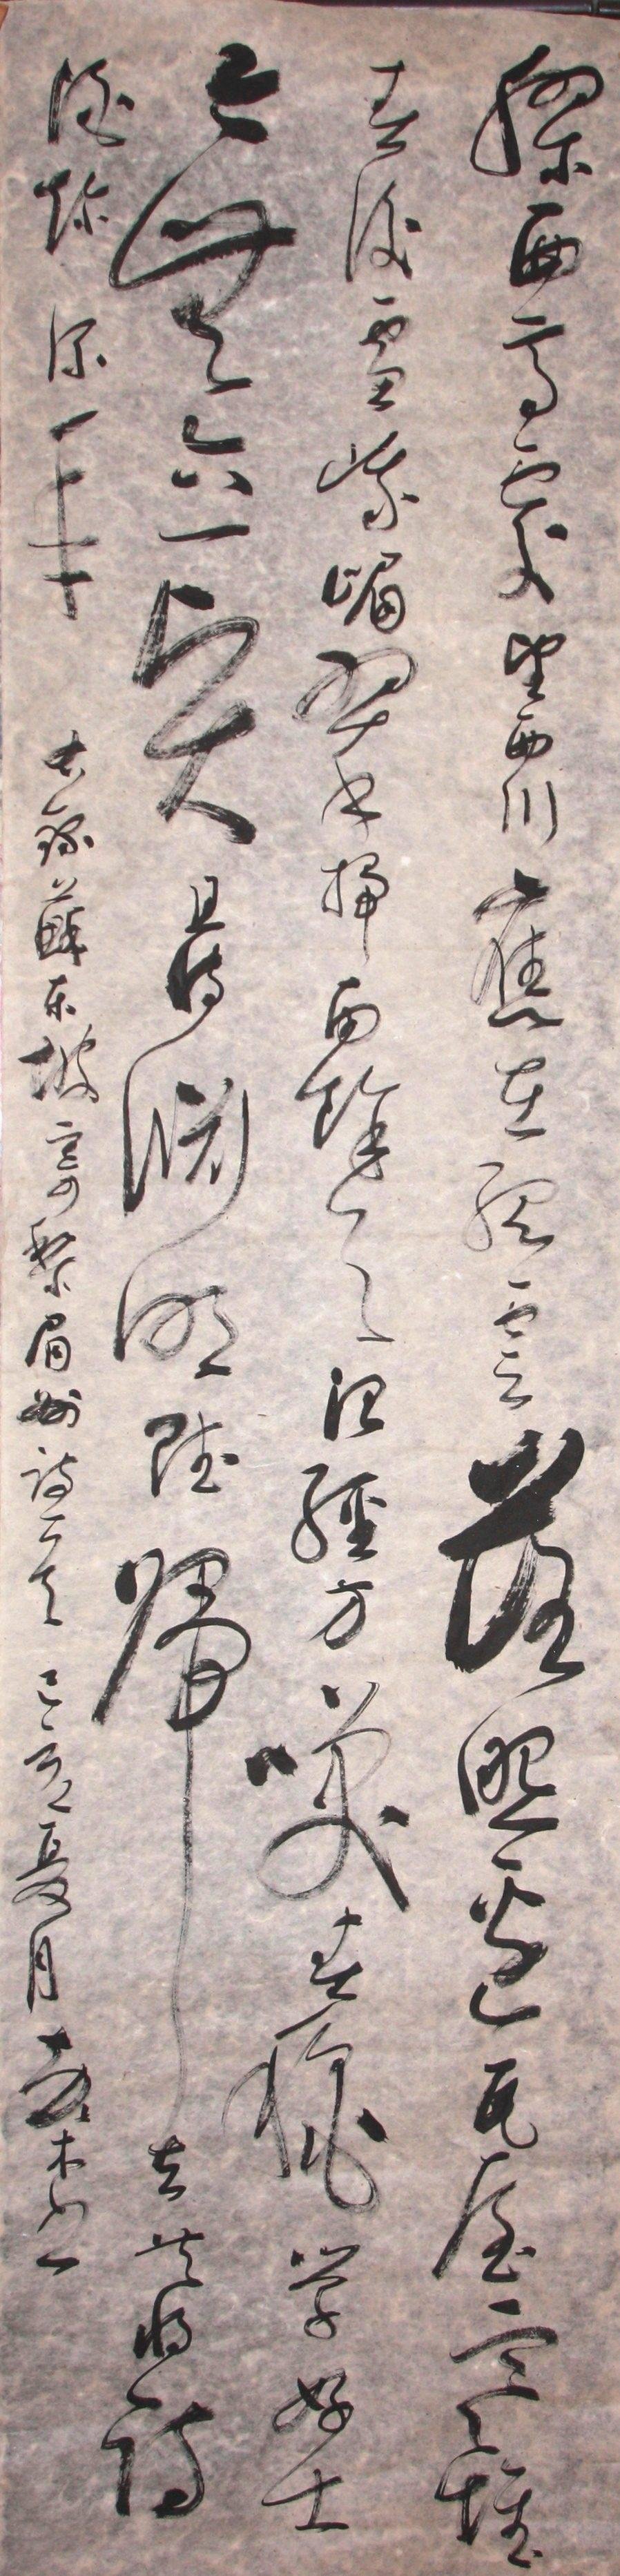 膠西高處望西川應在孤雲落照邊瓦屋寒堆
春後雪峨嵋翠掃雨餘天治經方笑春秋學好士
今無六一賢且待淵明賦歸去共將詩
酒趁流年
右錄蘇東坡寄黎眉州詩一首 己亥夏月